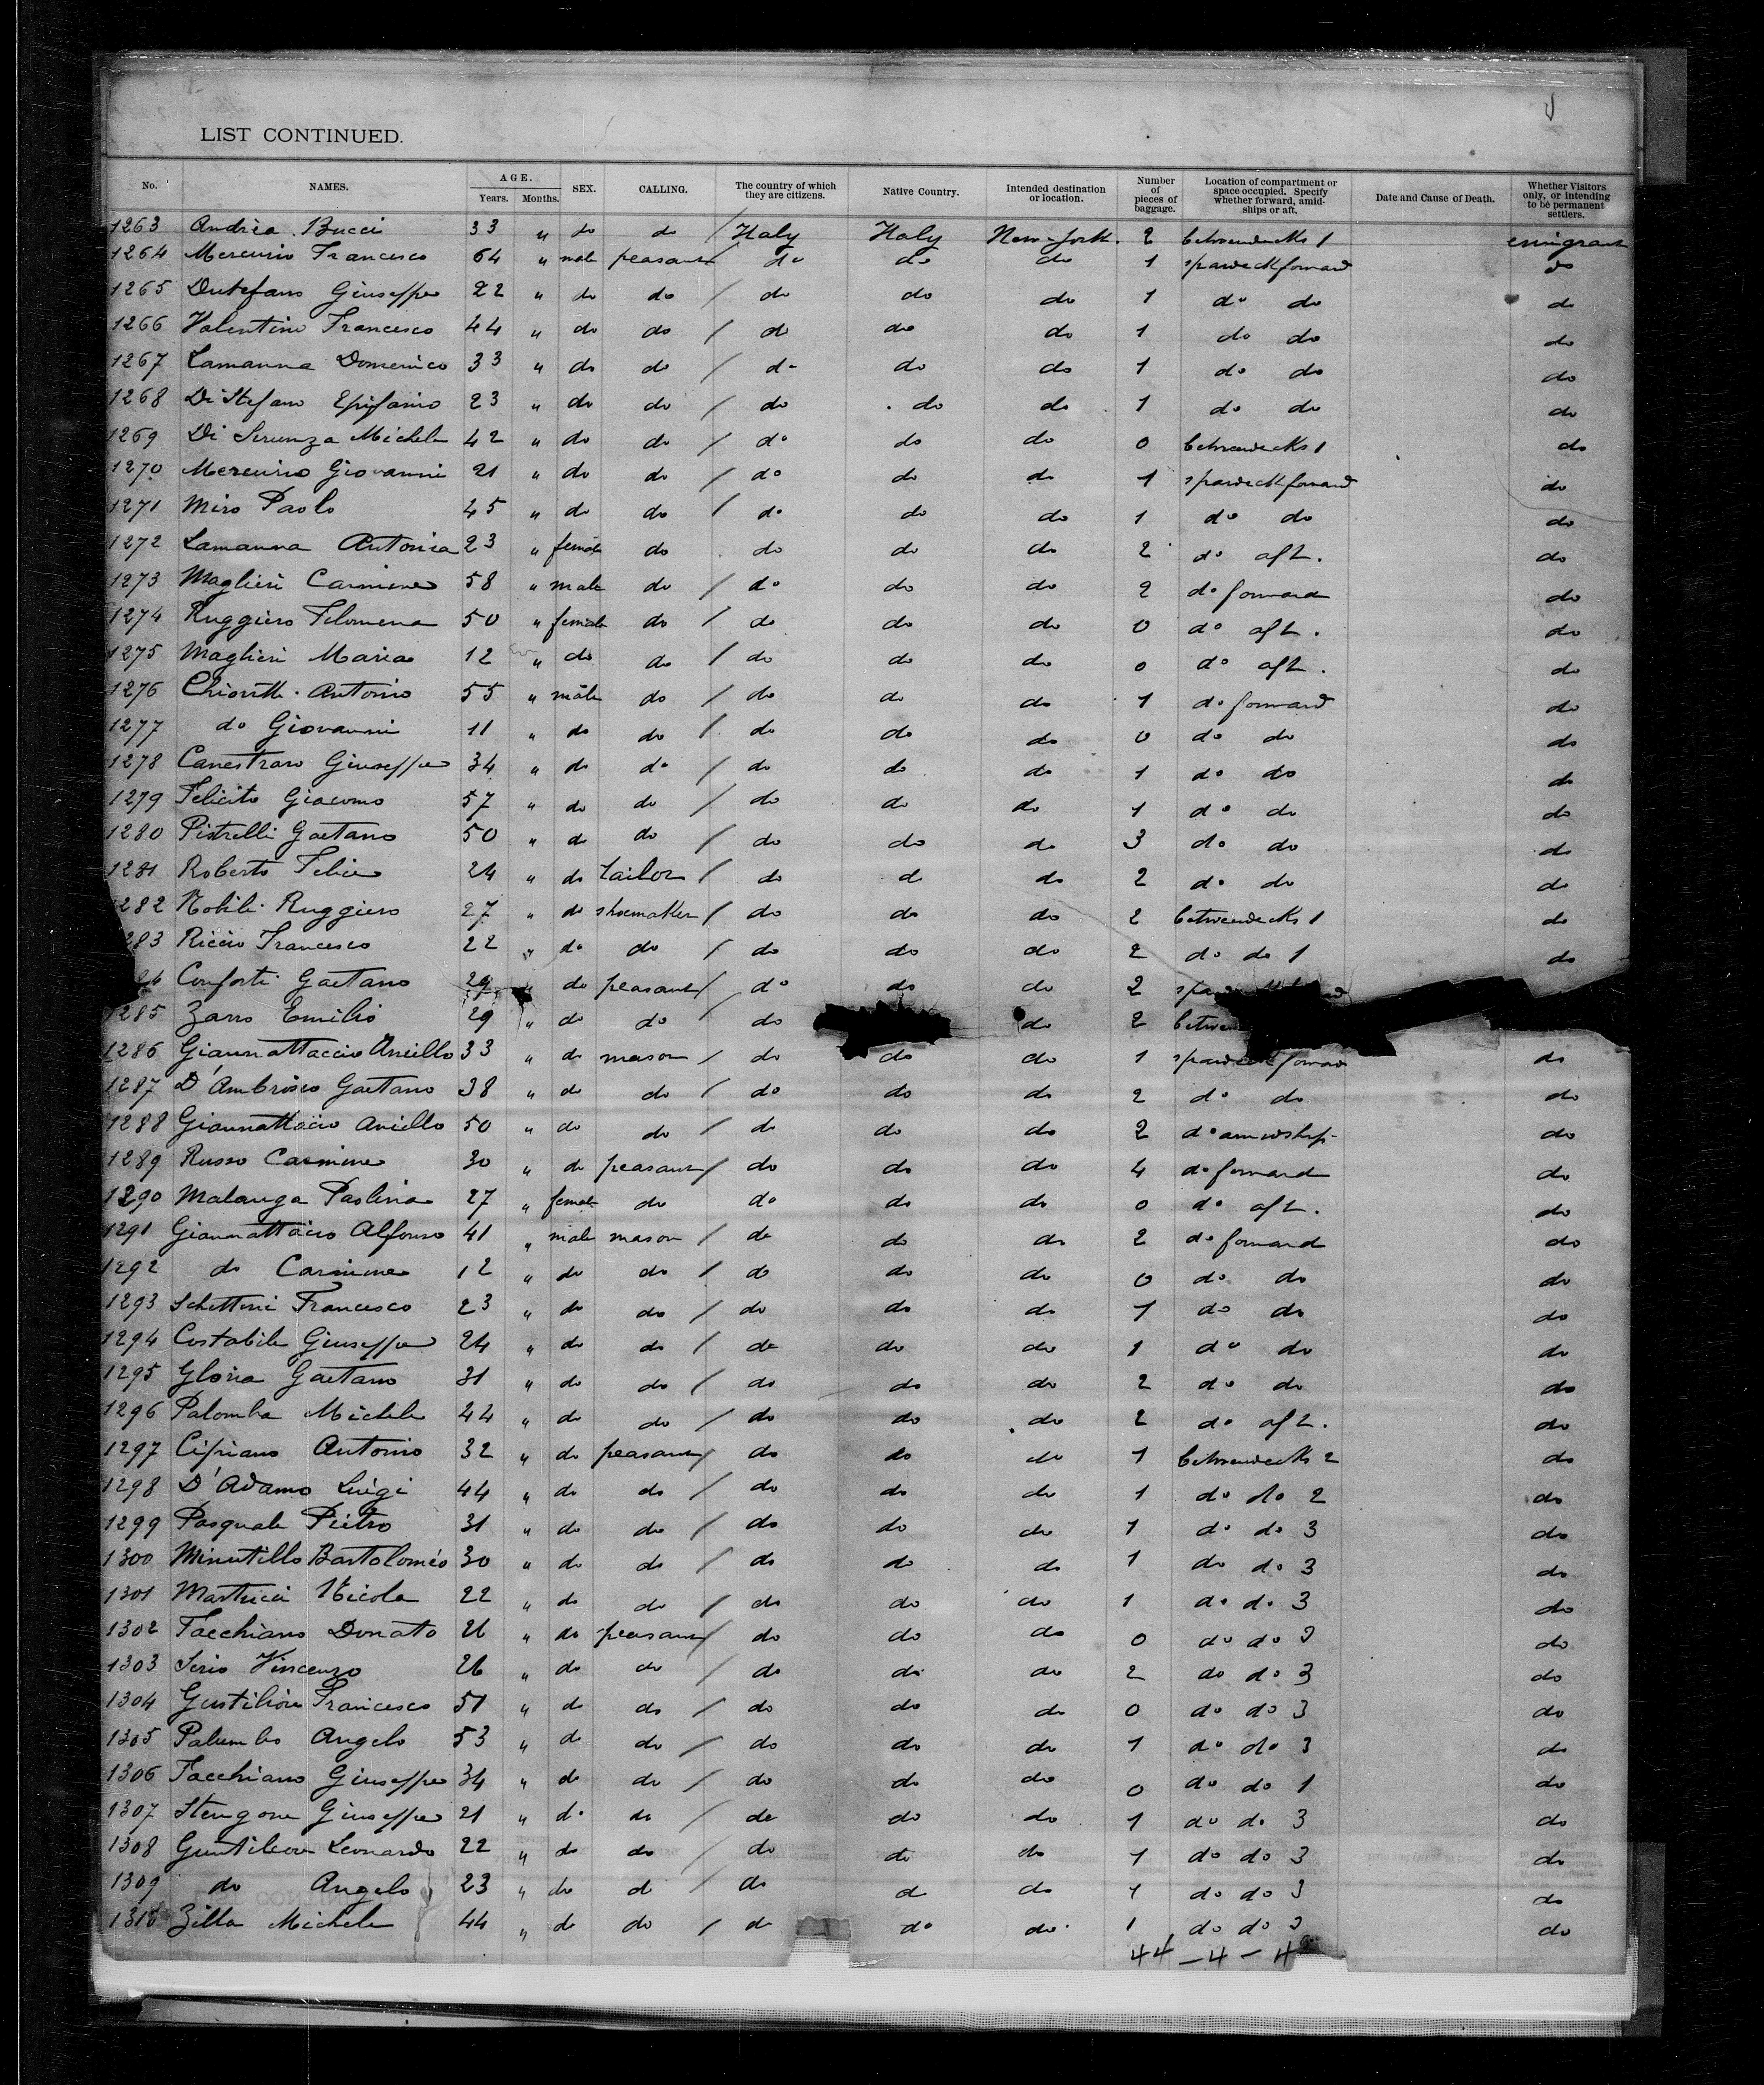 LIST CONTINUED.
No. NAMES. AGE. Years. Months. SEX. CALLING. The country of which they are citizens. Native Country. Intended destination or location. Number of pieces of baggage. Location of compartment or space occupied. Specify whether forward, amidships or aft. Date and Cause of Death. Whether Visitors only, or intending to be permanent settlers.
1263 Andrea Bucci 33 " do do / Italy Italy New-York. 2 betweendecks 1 emigrant
1264 Mercurio Francesco 64 " male peasant do do do 1 spardeck forward do
1265 Giuseppe 22 " do do / do do do 1 do do do
1266 Valentino Francesco 44 " do do / do do do 1 do do do
1267 Lamanna Domenico 33 " do do / do do do 1 do do do
1268 Di Stefano Epifanio 23 " do do / do do do 1 do do do
1269 Di Michele 42 " do do / do do do 0 betweendecks 1 do
1270 Mercurio Giovanni 21 " do do / do do do 1 spardeck forward do
1271 Miro Paolo 45 " do do / do do do 1 do do do
1272 Lamanna Antonia 23 " female do do do do 2 do aft. do
1273 Maglieri Carmine 58 " male do / do do do 2 do forward do
1274 Ruggiero Filomena 50 " female do / do do do 0 do aft. do
1275 Maglieri Maria 12 " do do / do do do 0 do aft. do
1276 Antonio 55 " male do / do do do 1 do forward do
1277 do Giovanni 11 " do do / do do do 0 do do do
1278 Canestraro Giuseppe 34 " do do / do do do 1 do do do
1279 Felicito Giacomo 57 " do do / do do do 1 do do do
1280 Pistrelli Gaetano 50 " do do / do do do 3 do do do
1281 Roberto Felice 24 " do tailor / do do do 2 do do do
282 Nobile Ruggiero 27 " do shoemaker / do do do 2 betweendecks 1 do
283 Riccio Francesco 22 " do do / do do do 2 do do 1 do
Conforti Gaetano 29 do peasant / do do do 2
1285 Zarro Emilio 29 " do do / do do 2
1286 Giannattaccio Aniello 33 " do mason / do do do 1 spardeck forward do
1287 D'Ambrosio Gaetano 38 " do do / do do do 2 do do do
1288 Giannattacio Aniello 50 " do do / do do do 2 do amidships do
1289 Russo Carmine 30 " do peasant / do do do 4 do forward do
1290 Malanga Paolina 27 " female do do do do 0 do aft. do
1291 Giannattacio Alfonso 41 " male mason / do do do 2 do forward do
1292 do Carmine 12 " do do / do do do 0 do do do
1293 Schettini Francesco 23 " do do / do do do 1 do do do
1294 Costabile Giuseppe 24 " do do / do do do 1 do do do
1295 Gloria Gaetano 31 " do do / do do do 2 do do do
1296 Palomba Michele 44 " do do / do do do 2 do aft. do
1297 Cipriano Antonio 32 " do peasant / do do do 1 betweendecks 2 do
1298 D'Adamo Luigi 44 " do do / do do do 1 do do 2 do
1299 Pasquale Pietro 31 " do do / do do do 1 do do 3 do
1300 Minutillo Bartolomeo 30 " do do / do do do 1 do do 3 do
1301 Martucci Nicola 22 " do do / do do do 1 do do 3 do
1302 Facchiano Donato " do peasant / do do do 0 do do 3 do
1303 Serio Vincenzo 26 " do do / do do do 2 do do 3 do
1304 Francesco 51 " do do / do do do 0 do do 3 do
1305 Palumbo Angelo 53 " do do / do do do 1 do do 3 do
1306 Facchiano Giuseppe 34 " do do / do do do 0 do do 1 do
1307 Giuseppe 21 " do do / do do do 1 do do 3 do
1308 Leonardo 22 " do do / do do do 1 do do 3 do
1309 do Angelo 23 " do do / do do do 1 do do 3 do
1310 Zilla Michele 44 " do do / do do do 1 do do 3 do
44 - 4 -